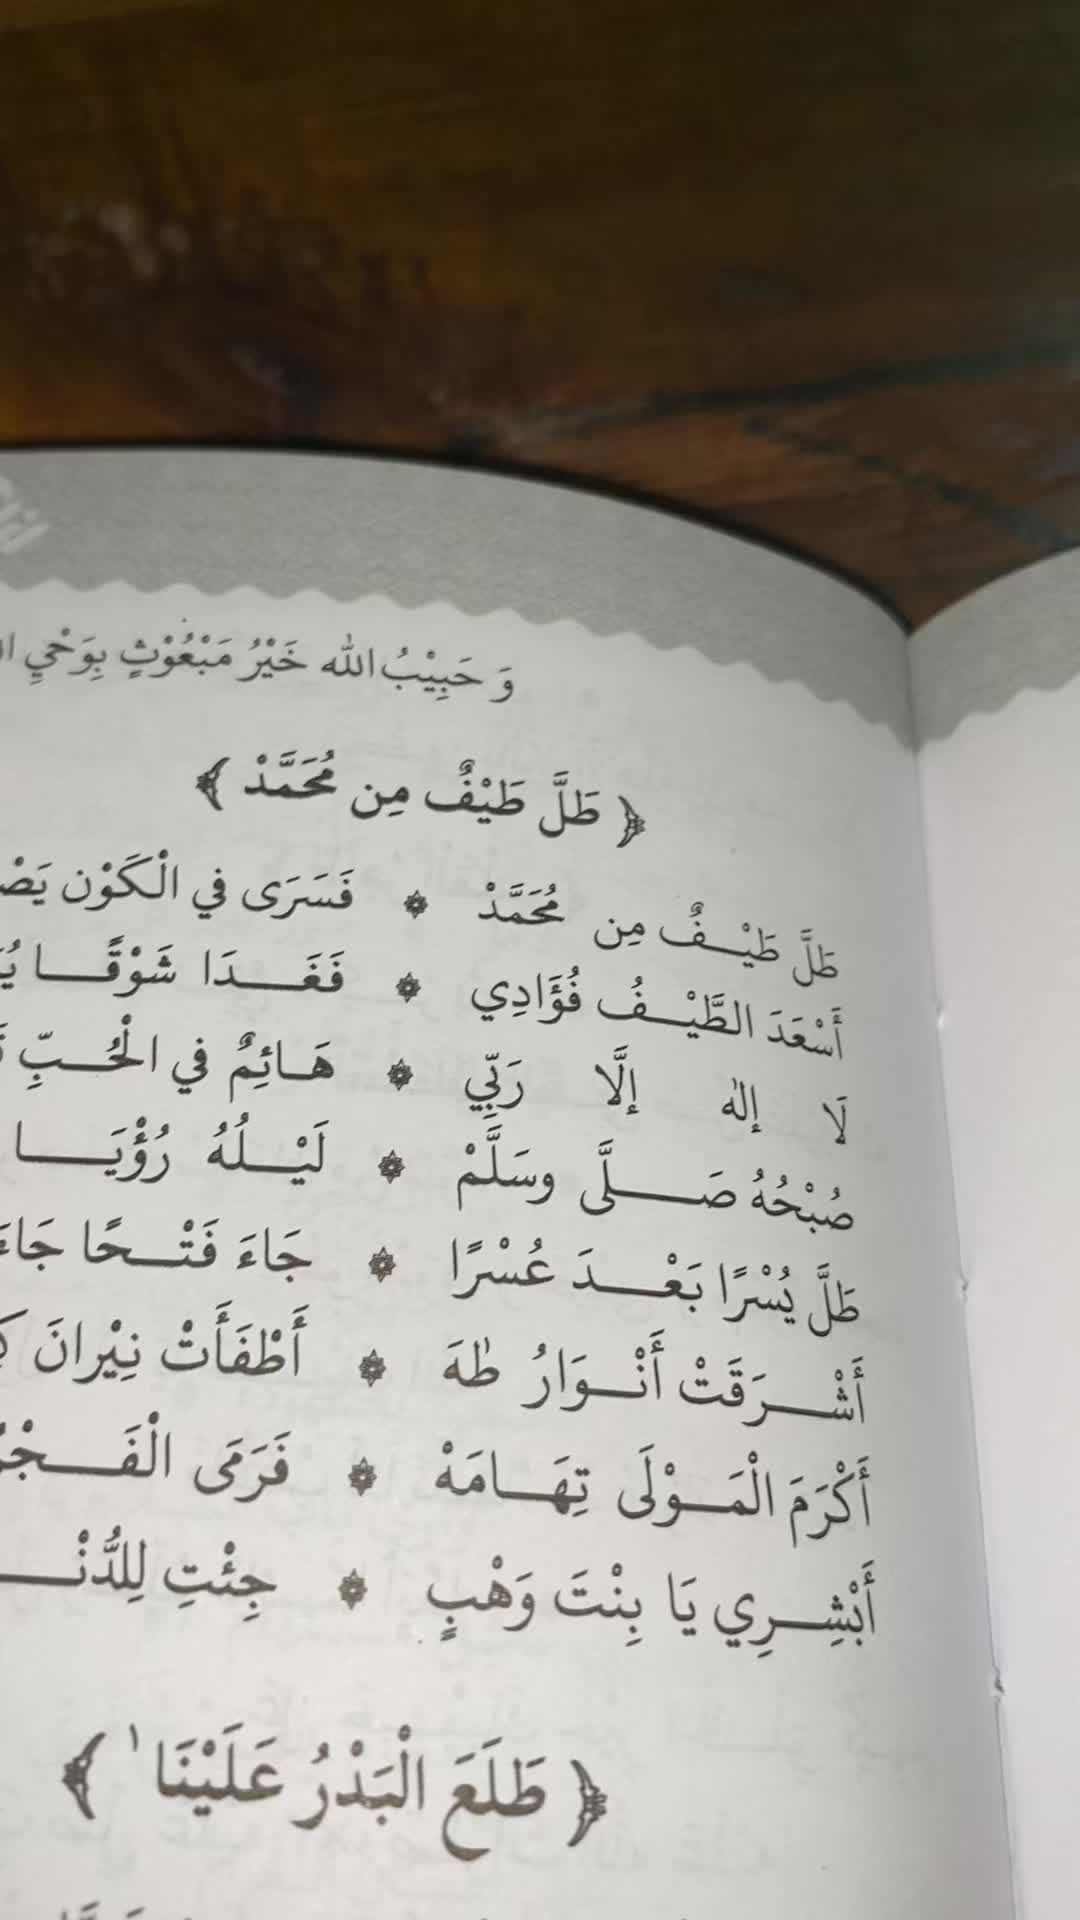 وَ حَبِيْبُ الله خَيْرُ مَبْعُوْثٍ بِوَحْيِ
﴿ طَلَّ طَيْفٌ مِن مُحَمَّدْ ﴾
طَلَّ طَيْـفٌ مِن مُحَمَّدْ ۞ فَسَرَى في الْكَوْن
أَسْعَدَ الطَّيْـفُ فُؤَادِي ۞ فَغَـدَا شَوْقًـا
لَا إِلٰه إِلَّا رَبِّي ۞ هَـائِمٌ في الْحُـبِّ
صُبْحُهُ صَـلَّى وسَلَّمْ ۞ لَيْـلُهُ رُؤْيَـا
طَلَّ يُسْرًا بَعْـدَ عُسْرًا ۞ جَاءَ فَتْـحًا
أَشْـرَقَتْ أَنْـوَارُ طٰهَ ۞ أَطْفَأَتْ نِيْرانَ
أَكْرَمَ الْمَـوْلَى تِهَـامَهْ ۞ فَرَمَى
أَبْشِـرِي يَا بِنْتَ وَهْبٍ ۞ جِئْتِ
﴿ طَلَعَ الْبَدْرُ عَلَيْنَا ١ ﴾